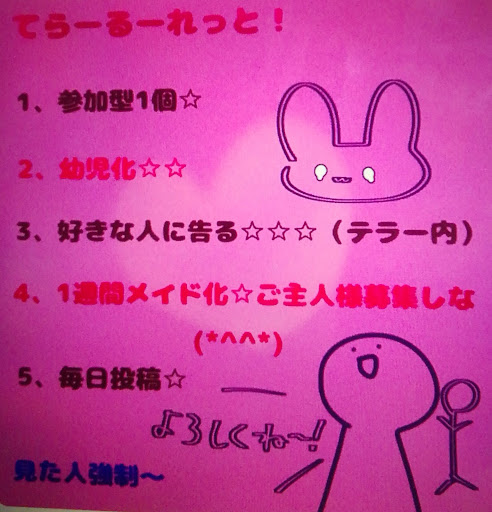 てらーるーれっと！
1、参加型1個☆
2、幼児化☆☆
3、好きな人に告る☆☆☆（テラー内）
4、1週間メイド化☆ご主人様募集しな
(*^^*)
5、毎日投稿☆
よろしくね〜!
見た人強制〜